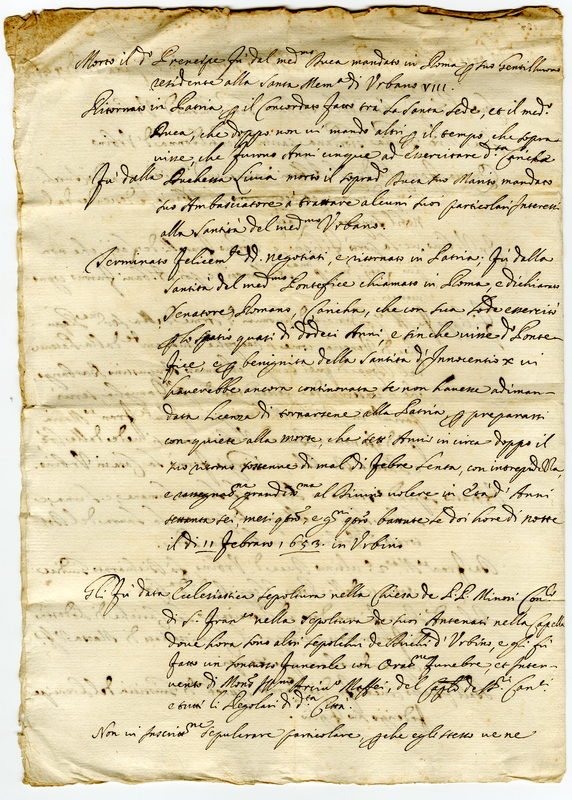 Morto il dº Prencipe fù dal medmo Duca mandato in Roma p suo Gentilhuomo
residente alla Santa Mema di Vrbano VIII.
Ritornato in Patria p il Concordato fatto trà La Santa Sede, et il medo
Duca, che doppo non ui mandò altri p il tempo, che sopra
uisse, che furono Anni cinque ad essercitare dta Caricha
Fù dalla Duchessa Liuia morto il soprado Duca suo Marito mandato
suo Ambasciatore à trattare alcuni suoi particolari Interessi
alla Santità del medmo Vrbano.
Terminato felicemte dd. negotiati, e ritornato in Patria; Fù dalla
Santità del medmo Pontefice chiamato in Roma, e dichiarato
Senatore Romano, Caricha, che con sua lode essercitò
p lo spatio quasi di dodeci Anni, e sin che uisse do Ponte
fice, e p benignità della Santità d'Innocentio X ui
hauerebbe ancora continouato, se non hauesse adiman-
data licenza di tornarsene alla Patria p prepararsi
con quiete alla morte, che sett' Anni in circa doppo il
suo ritorno sostenne di mal di febre lenta, con intrepidezza,
e rassegnatne grandissma al Diuino uolere in Età d'Anni
settanta sei mesi qtro, e gni qtro. battute le doi hore di notte
il dì 11 Febraro 1653. in Vrbino
Gli fù data Ecclesiastica sepoltura nella Chiesa de P.P. Minori Conli
di S. Franco nella sepoltura de suoi Antenati nella Capella
doue hora sono altri sepolchri de Duchi d'Vrbino, e gli fù
fatto un sontuoso funerale con Oratne funebre, et Inter-
uento di Monsr Maffei, del Caplo de SS.ri Canci
e tutti li Regolari di dta Città.
Non ui Inscrittne sepulcrare particolare, p che egli stesso ue ne